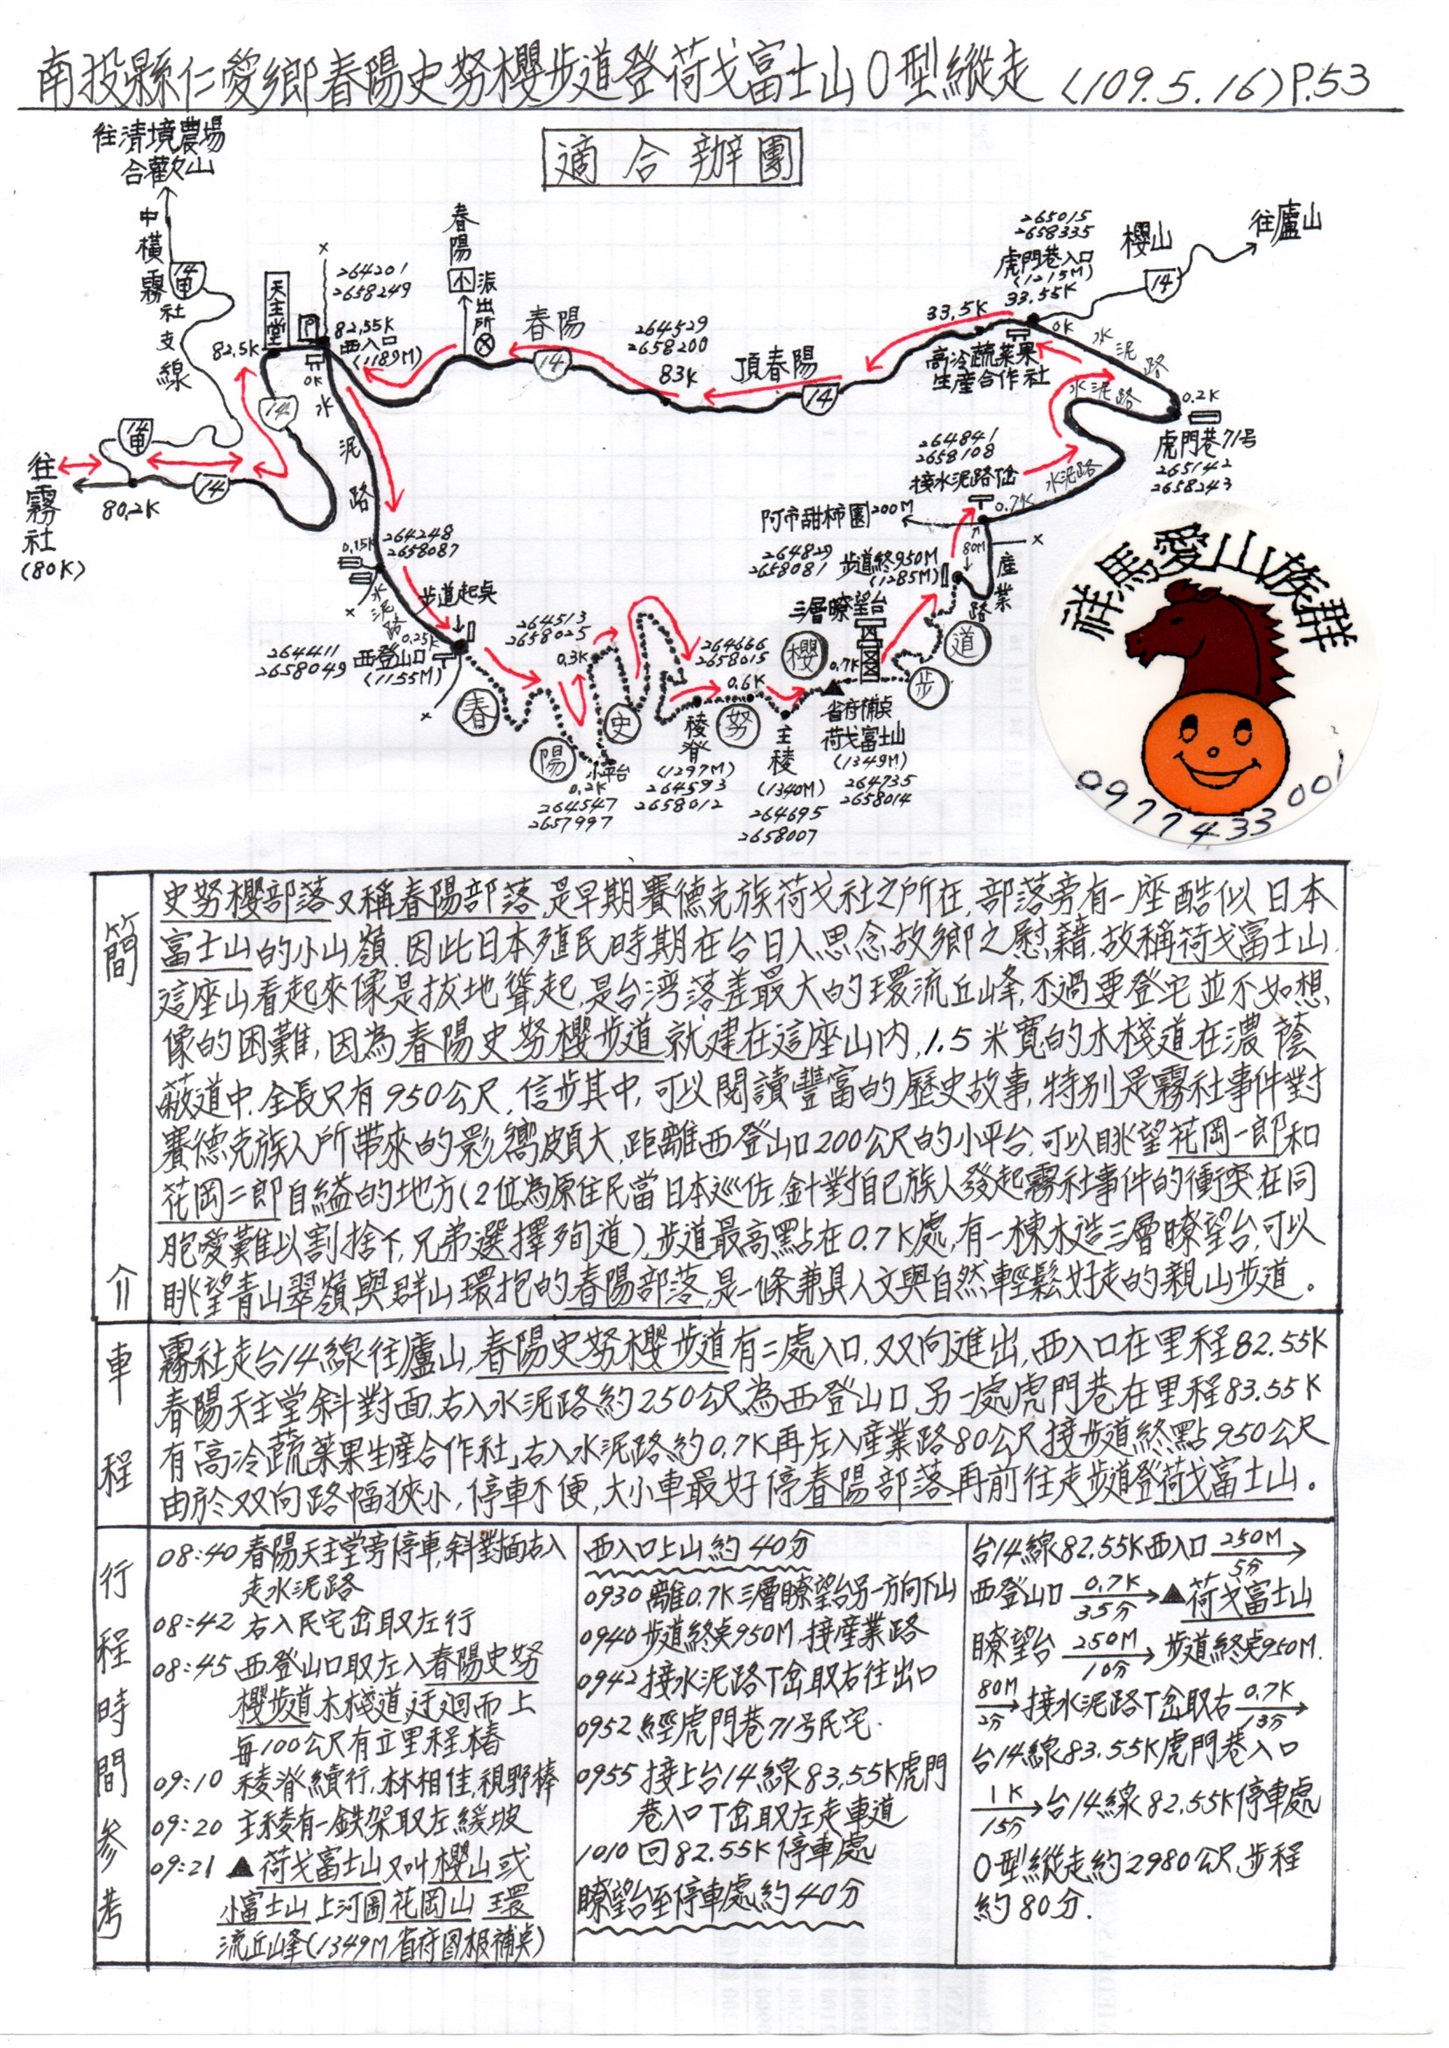 南投縣仁愛鄉春陽史努櫻步道登荷戈富士山O型縱走 (109.5.16) P.53
適合辦團
往清境農場
合歡山
中橫霧社支線
14甲
天主堂
82.5K
264201
2658249
82.55K
西入口
(1189M)
0K
水泥路
春陽
小
派出所
春陽
14
264529
2658200
83K
頂春陽
14
33.5K
265015
2658335
虎門巷入口
(1215M)
33.55K
0K
高冷蔬菜果
生產合作社
櫻山
14
往廬山
水泥路
水泥路
0.2K
虎門巷71号
265142
2658243
14甲
14
14
往霧社
(80K)
80.2K
264841
2658108
接水泥路T岔
0.7K
水泥路
阿市甜柿園200M
80M
產業路
264829
2658081
步道終950M
(1285M)
三層瞭望台
0.15K
264248
2658087
水泥路
步道起点
0.25K
264411
2658049
西登山口
(1155M)
264513
2658025
0.3K
264666
2658015
0.6K
0.7K
春陽史努櫻步道
小平台
0.2K
264547
2657997
稜脊
(1297M)
264593
2658012
主稜
(1340M)
264695
2658007
省府補点
荷戈富士山
(1349M)
264735
2658014
祥馬愛山族群
0977433001
簡介
史努櫻部落又稱春陽部落,是早期賽德克族荷戈社之所在,部落旁有一座酷似日本
富士山的小山嶺.因此日本殖民時期在台日人思念故鄉之慰藉,故稱荷戈富士山.
這座山看起來像是拔地聳起,是台湾落差最大的環流丘峰,不過要登它並不如想
像的困難,因為春陽史努櫻步道就建在這座山內,1.5米寬的木棧道在濃蔭
蔽道中,全長只有950公尺,信步其中,可以閱讀豐富的歷史故事,特別是霧社事件對
賽德克族人所帶來的影嚮頗大,距離西登山口200公尺的小平台,可以眺望花岡一郎和
花岡二郎自縊的地方(2位為原住民當日本巡佐,針對自己族人發起霧社事件的衝突,在同
胞愛難以割捨下,兄弟選擇殉道),步道最高點在0.7K處,有一棟木造三層瞭望台,可以
眺望青山翠嶺與群山環抱的春陽部落,是一條兼具人文與自然輕鬆好走的親山步道。
車程
霧社走台14線往廬山,春陽史努櫻步道有二處入口,双向進出,西入口在里程82.55K
春陽天主堂斜對面,右入水泥路約250公尺為西登山口,另一處虎門巷在里程83.55K
有「高冷蔬菜果生產合作社」右入水泥路約0.7K再左入產業路80公尺接步道終點950公尺
由於双向路幅狹小,停車不便,大小車最好停春陽部落再前往走步道登荷戈富士山。
行程時間參考
08:40 春陽天主堂旁停車,斜對面右入
走水泥路
08:42 右入民宅岔取左行
08:45 西登山口取左入春陽史努
櫻步道木棧道迂迴而上
每100公尺有立里程樁
09:10 稜脊續行,林相佳,視野棒
09:20 主稜有一鉄架取左緩坡
09:21 ▲荷戈富士山又叫櫻山或
小富士山 上河圖花岡山 環
流丘峰(1349M,省府图根補点)
西入口上山約40分
0930 離0.7K三層瞭望台另一方向下山
0940 步道終点950M,接產業路
0942 接水泥路T岔取右往出口
0952 經虎門巷71号民宅.
0955 接上台14線83.55K虎門
巷入口T岔取左走車道
1010 回82.55K停車處
瞭望台至停車處約40分
台14線82.55K西入口 250M 5分
西登山口 0.7K 35分 ▲荷戈富士山
瞭望台 250M 10分 步道終点950M.
80M 2分 接水泥路T岔取右 0.7K 13分
台14線83.55K虎門巷入口
1K 15分 台14線82.55K停車處
O型縱走約2980公尺,步程
約80分.